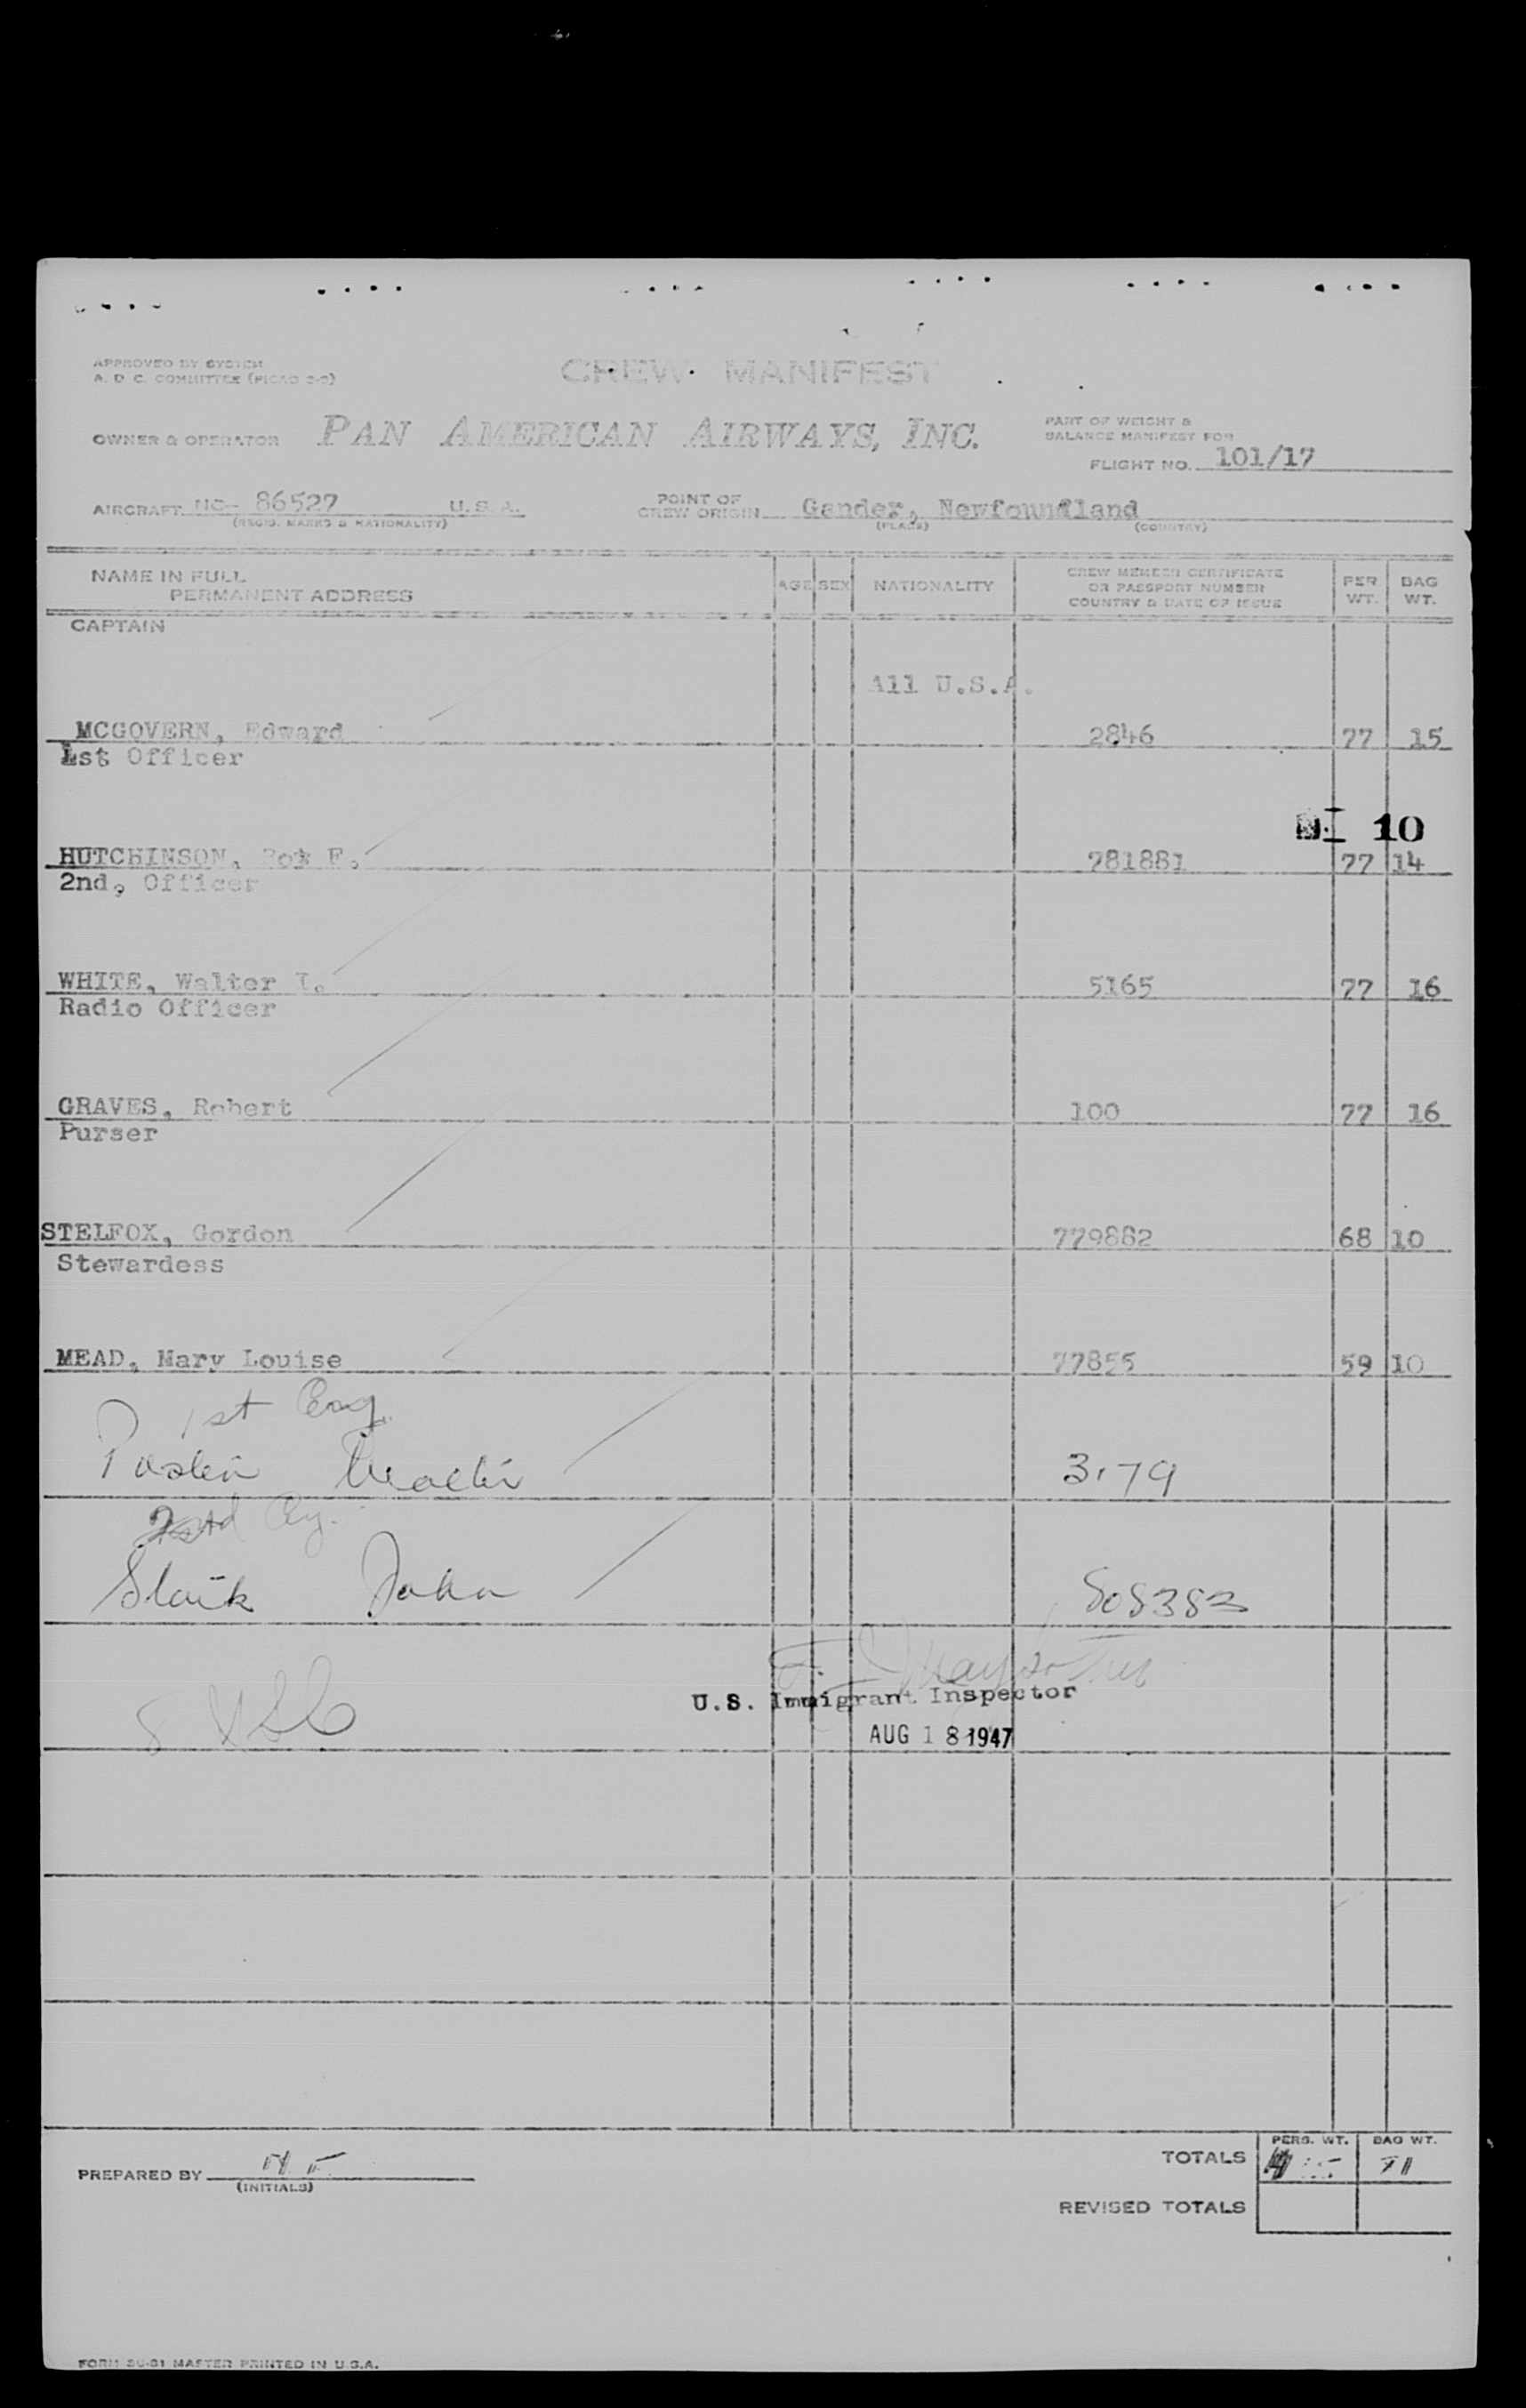 APPROVED BY SYSTEM
A. D. C. COMMITTEE (PICAO
CREW MANIFEST
OWNER & OPERATOR PAN AMERICAN AIRWAYS, INC.
PART OF WEIGHT &
BALANCE MANIFEST FOR
FLIGHT NO. 101/17
AIRCRAFT NC- 86527 U.S.A. POINT OF CREW ORIGIN Gander, Newfoundland
(REGIS. MARKS & NATIONALITY) (PLACE) (COUNTRY)
NAME IN FULL PERMANENT ADDRESS AGE SEX NATIONALITY CREW MEMBER CERTIFICATE OR PASSPORT NUMBER COUNTRY & DATE OF ISSUE PER. WT. BAG WT.
CAPTAIN
All U.S.A.
MCGOVERN, Edward 2846 77 15
1st Officer
10
HUTCHINSON, F. 781881 77 14
2nd, Officer
WHITE, Walter 5165 77 16
Radio Officer
GRAVES, Robert 100 77 16
Purser
STELFOX, Gordon 779882 68 10
Stewardess
MEAD, Mary Louise 77855 59 10
1st Eng.
3179
Eng.
John 508383
U.S. Immigrant Inspector
AUG 18 1947
TOTALS PERS. WT. BAG WT.
PREPARED BY
(INITIALS)
REVISED TOTALS
MASTER PRINTED IN U.S.A.